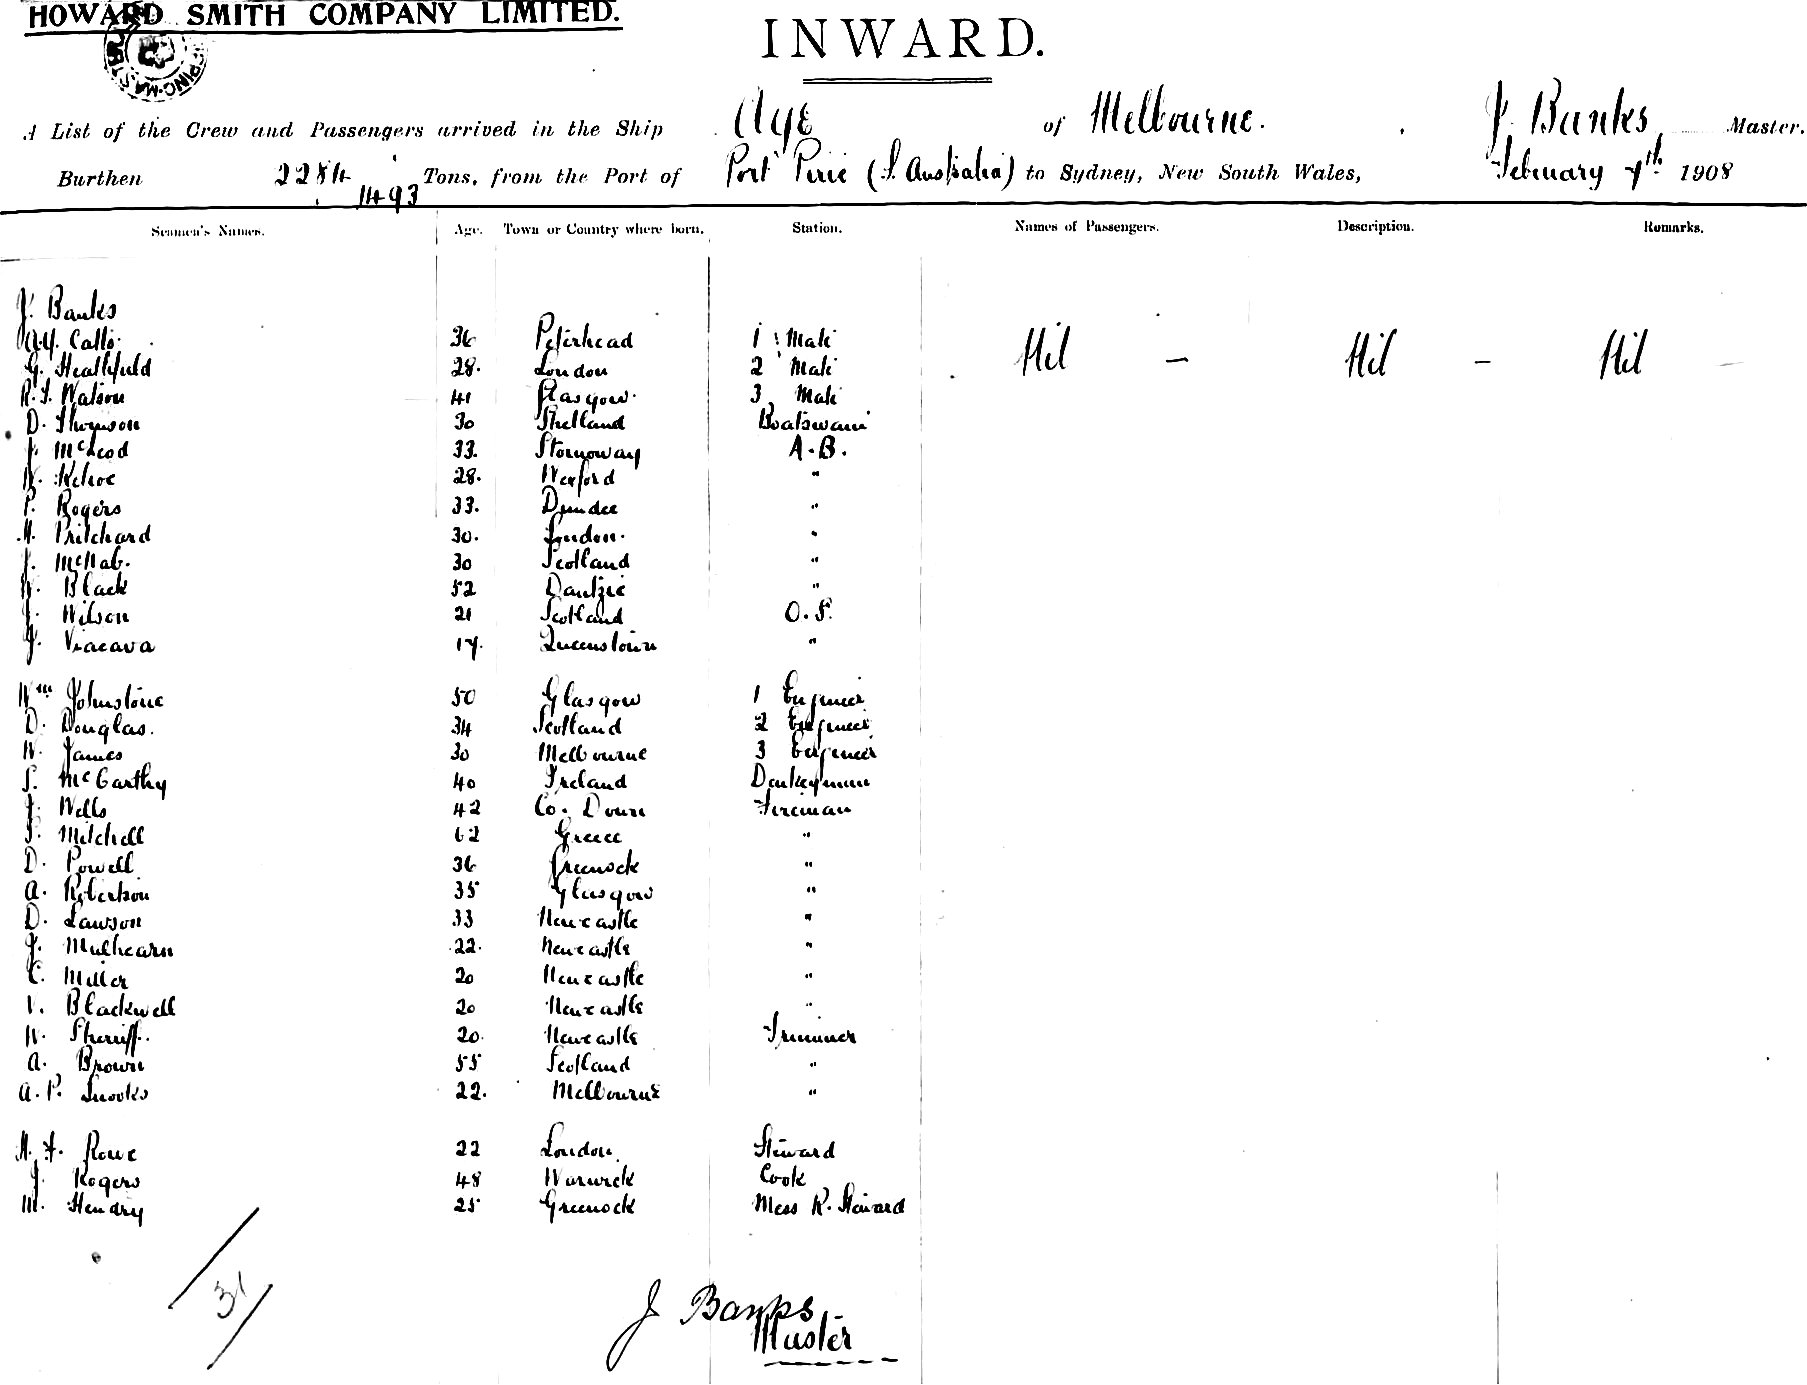 HOWARD SMITH COMPANY LIMITED.
INWARD.
A List of the Crew and Passengers arrived in the Ship Age of Melbourne. J. Banks, Master.
Burthen 2284 Tons, from the Port of Port Pirie (S. Australia) to Sydney, New South Wales, February 7th 1908
1493
Seamen's Names. Age. Town or Country where born. Station. Names of Passengers. Description. Remarks.
J. Banks
Callo. 36 Peterhead 1 Mate Nil - Nil - Nil -
G. Heathfield 28. London 2 Mate
R. S. Watson 41 Glasgow. 3 Mate
D. Thomson 30 Shetland Boatswain
J. McLeod 33. Stornoway A.B.
W. Kehoe 28. Wexford "
P. Rogers 33. Dundee "
H. Pritchard 30. London. "
J. McNab. 30 Scotland "
W. Black 52 Dantzic "
J. Wilson 21 Scotland O.S.
J. Viacava 17. Queenstown "
Wm Johnstone 50 Glasgow 1 Engineer
D. Douglas. 34 Scotland 2 Engineer
W. James 30 Melbourne 3 Engineer
S. McCarthy 40 Ireland Donkeyman
J. Wells 42 Co. Down Fireman
S. Mitchell 62 Greece "
D. Powell 36 Greenock "
A. Robertson 35 Glasgow "
D. Lawson 33 Newcastle "
J. Mulhearn 22. Newcastle "
C. Miller 20 Newcastle "
V. Blackwell 20 Newcastle "
W. Sherriff. 20. Newcastle Trimmer
A. Brown 55 Scotland "
A. P. Snooks 22. Melbourne "
H. F. Rowe 22 London. Steward
J. Rogers 48 Warwick Cook
M. Hendry 25 Greenock Mess R. Steward
31
J Banks
Master